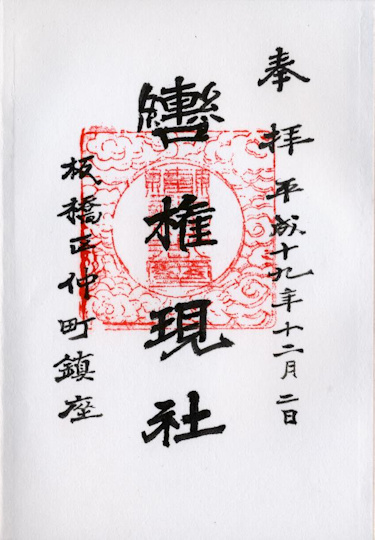 奉拝 平成十九年十二月二日
轡権現社
板橋区仲町鎮座